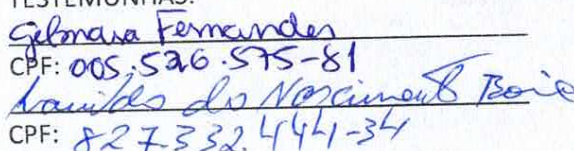 TESTEMUNHAS:
Gelmara Fernandes
CPF: 005.526.575-81
do Nascimento
CPF: 827.332.444-34